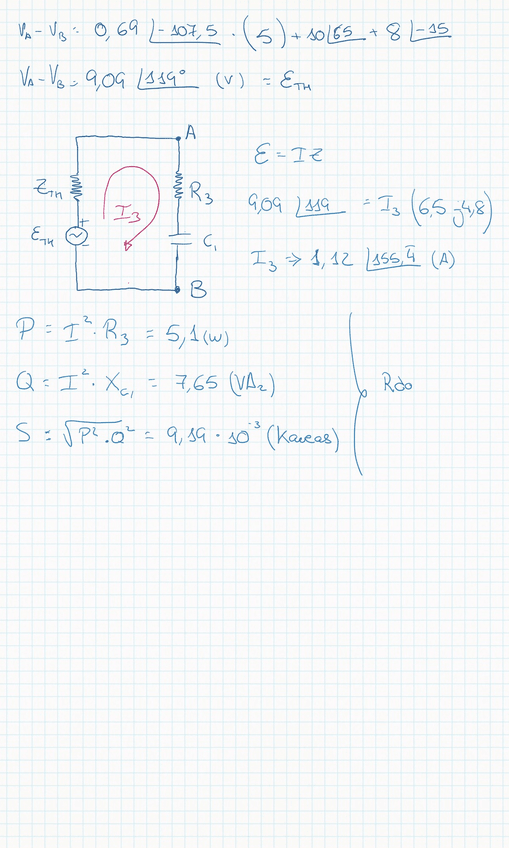 VA - VB = 0,69 ∠-107,5 · (5) + 10∠65 + 8 ∠-15
VA - VB = 9,09 ∠119° (V) = ETH
A
ZTH
R3
I3
ETH
+
-
C1
B
E = I Z
9,09 ∠119 = I3 (6,5 - j4,8)
I3 => 1,12 ∠155,4 (A)
P = I² · R3 = 5,1 (W)
Q = I² · XC1 = 7,65 (VAr)
Rdo
S = √P² · Q² = 9,19 · 10⁻³ (Kavas)